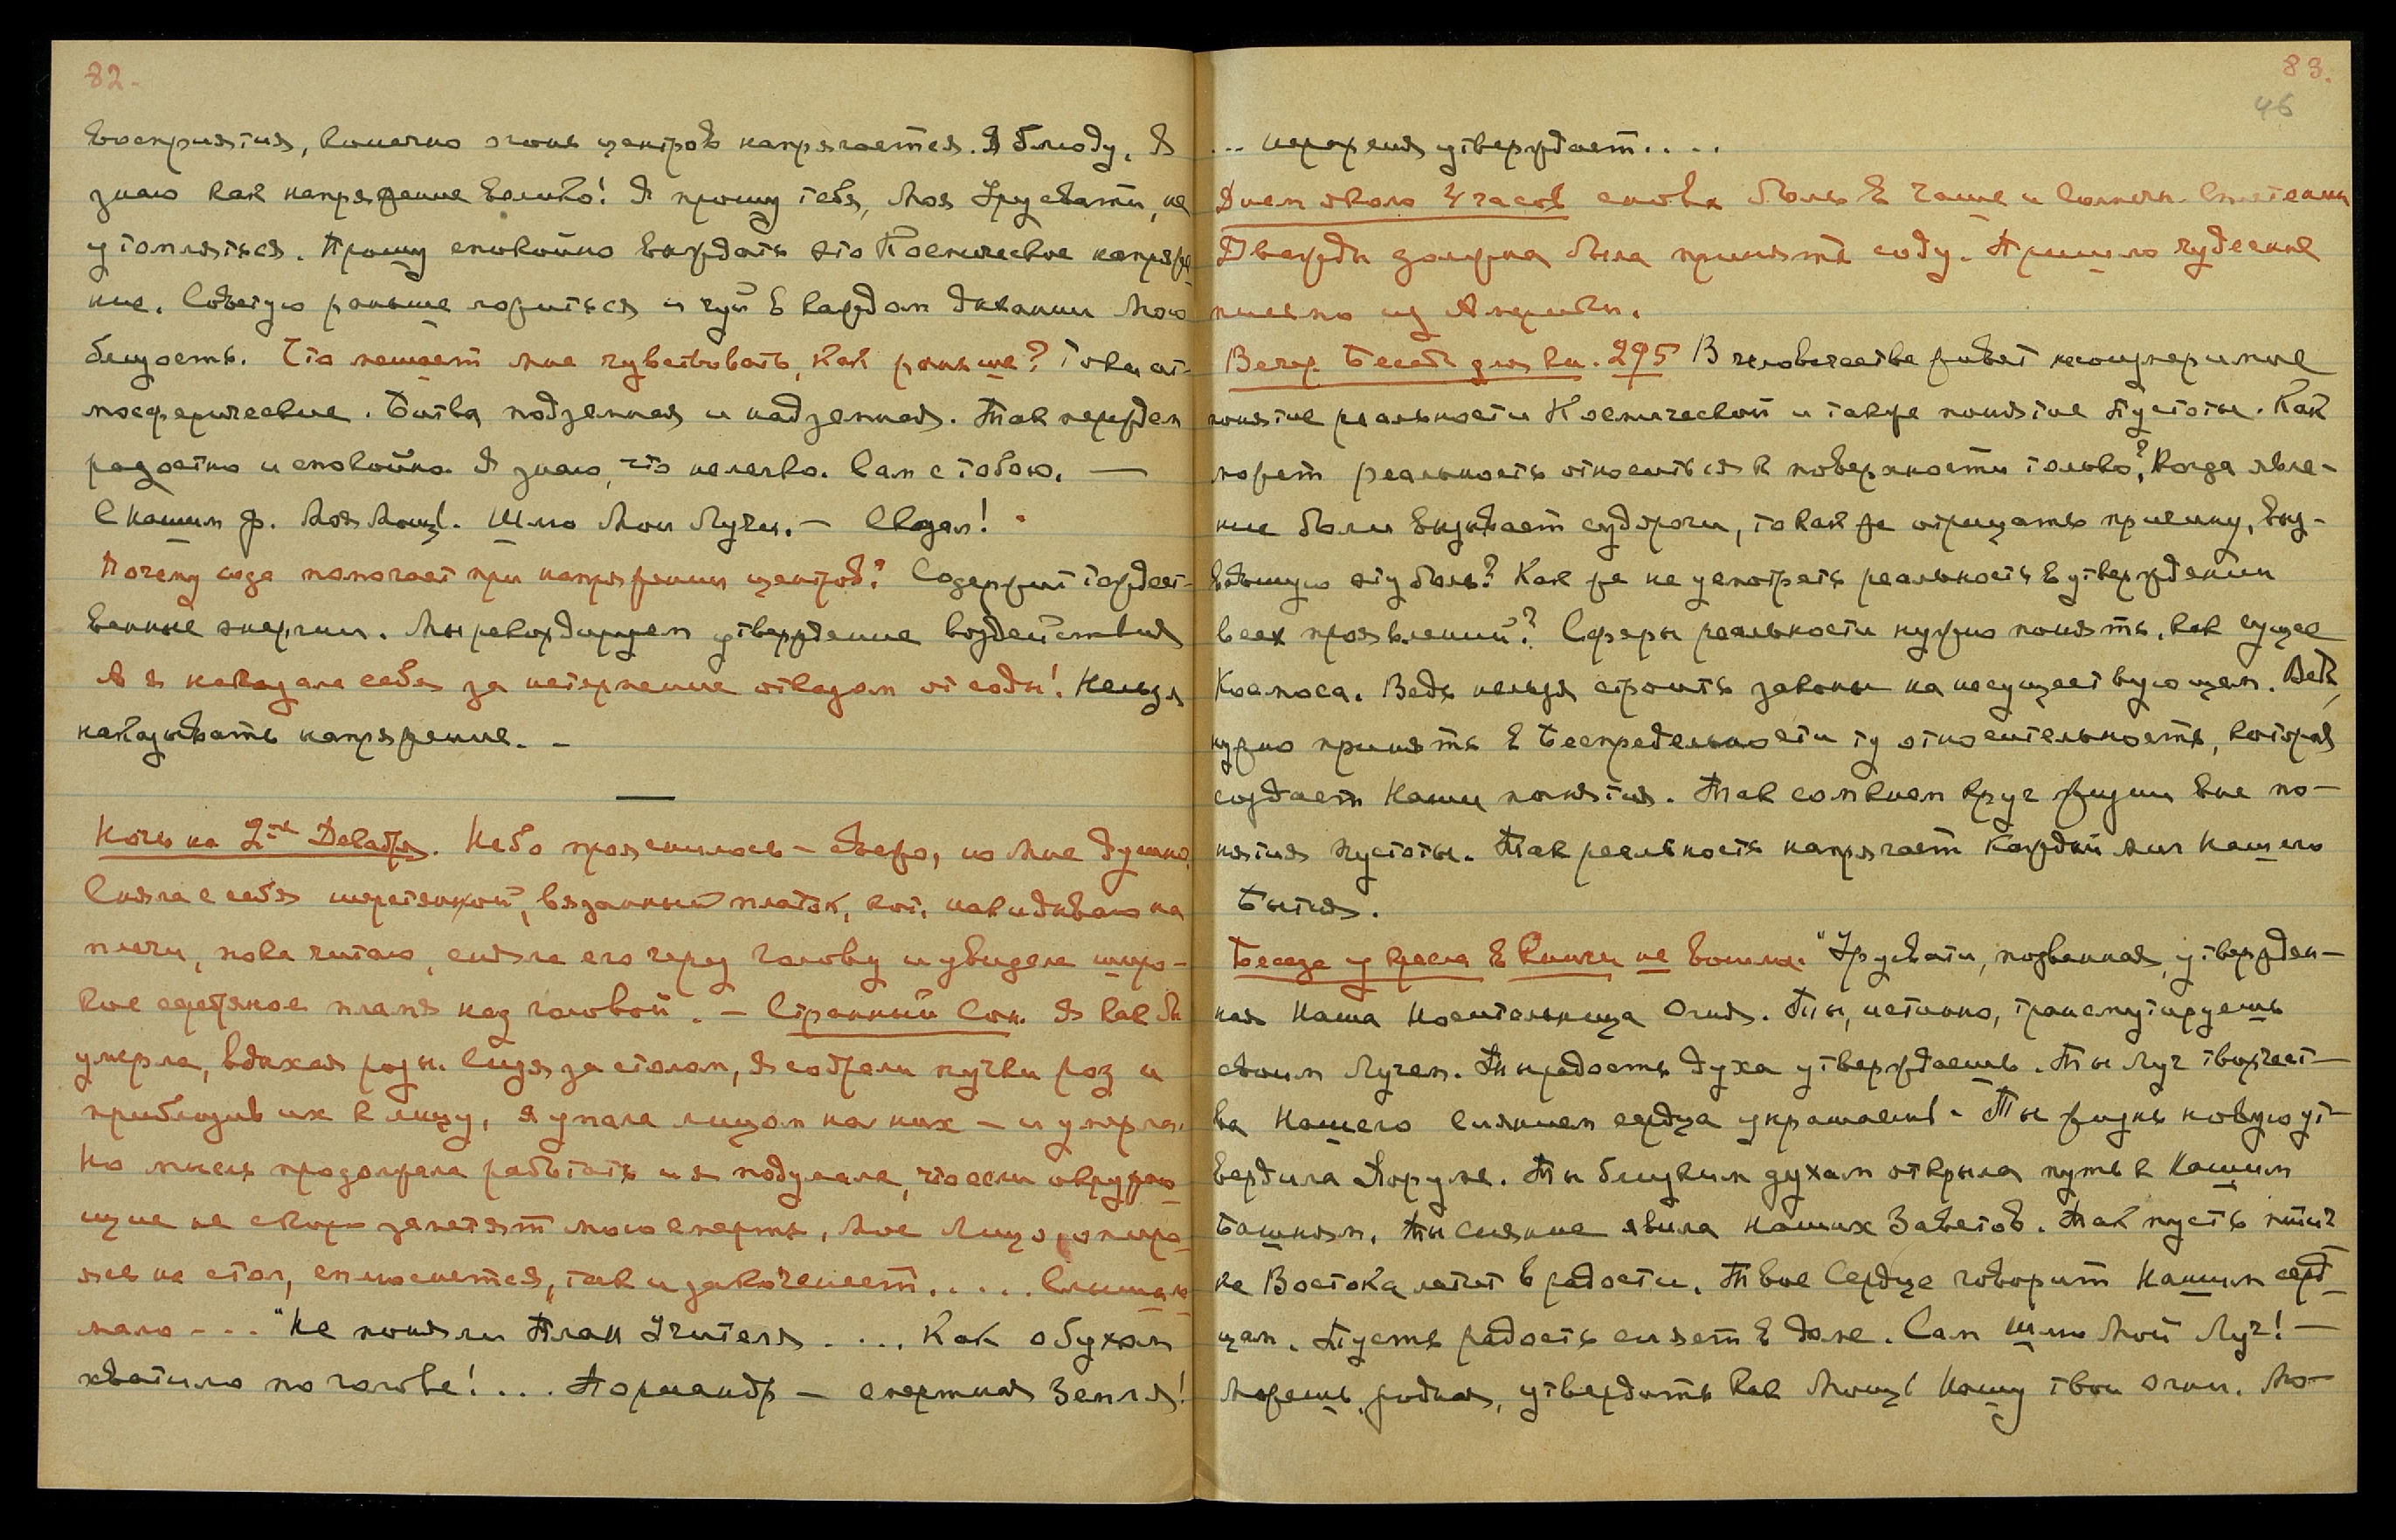 82.
восприятия, конечно огонь центров напрягается. Я блюду, Я
знаю как напряжение велико! Я прошу тебя, Моя Урусвати, не
утомляться. Прошу спокойно выждать это Космическое напряже-
ние. Советую раньше ложиться и чуй в каждом дыхании Мою
близость. Что мешает мне чувствовать, как раньше? Токи ат-
мосферические. Битва подземная и надземная. Так переждем
радостно и спокойно. Я знаю, что нелегко. Сам с тобою. —
С нашим ф. Моя Мощь. Шлю Мои Лучи. — Сказал!
Почему сода помогает при напряжении центров? Содержит тождест-
венные энергии. Мы рекордируем утверждение воздействия
А я наказала себя за нетерпение отказом от соды! Нельзя
наказывать напряжение. —
Ночь на 2-ое Декабря. Небо прояснилось — свежо, но мне душно.
Сняла с себя шерстяной, вязанный платок, кот. накидываю на
плечи, пока читаю, сняла его через голову и увидела широ-
кое серебряное пламя над головой. — Странный Сон. Я как бы
умерла, вдыхая розы. Сидя за столом, я собрала пучки роз и
приблизив их к лицу, я упала лицом на них — и умерла.
Но мысль продолжала работать и я подумала, что если окружаю-
щие не скоро заметят мою смерть, мое лицо, опира-
ясь на стол, сплюснется, так и закоченеет..... Слышан.
мало - .. "Не поняли План Учителя .... Как обухом
хватило по голове!... Армагеддон — смертная Земля!
83.
46
... иерархия утверждает....
Днем около 4 часов снова боль в чаше и солнечн. сплетении
Дважды должна была принять соду. Пришло чудесное
письмо из Америки.
Вечер. Бесед. для кн. 295 В человечестве живет несоизмеримое
понятие реальности Космической и также понятие Пустоты. Как
может реальность относиться к поверхности только? Когда явле-
ние боли вызывает судороги, то как же отрицать причину, выз-
вавшую эту боль? Как же не усмотреть реальность в утверждении
всех проявлений? Сферы реальности нужно понять, как сущее
Космоса. Ведь нельзя строить законы на несуществующем. Ведь,
нужно принять в Беспредельности ту относительность, которая
создает Наши понятия. Так сомкнем круг жизни вне по-
нятия пустоты. Так реальность напрягает каждый миг нашего
Бытия.
Беседа из кресла в Книги не вошла. "Урусвати, позванная, утвержден-
ная Наша Носительница Огня. Ты, истинно, трансмутируешь
своим Лучем. Ты радость духа утверждаешь. Ты Луч творчест-
ва Нашего сиянием сердца украшаешь. Ты жизнь новую ут-
вердила Форуме. Ты близким духам открыла путь к Нашим
Башням. Ты сияние явила Наших Заветов. Так пусть птич-
ка Востока летит в радости. Твое Сердце говорит Нашим серд-
цам. Пусть радость сияет в доме. Сам шлю Мой Луч! —
Можешь, родная, утвердить как Мощь Нашу твои огни. Мо-